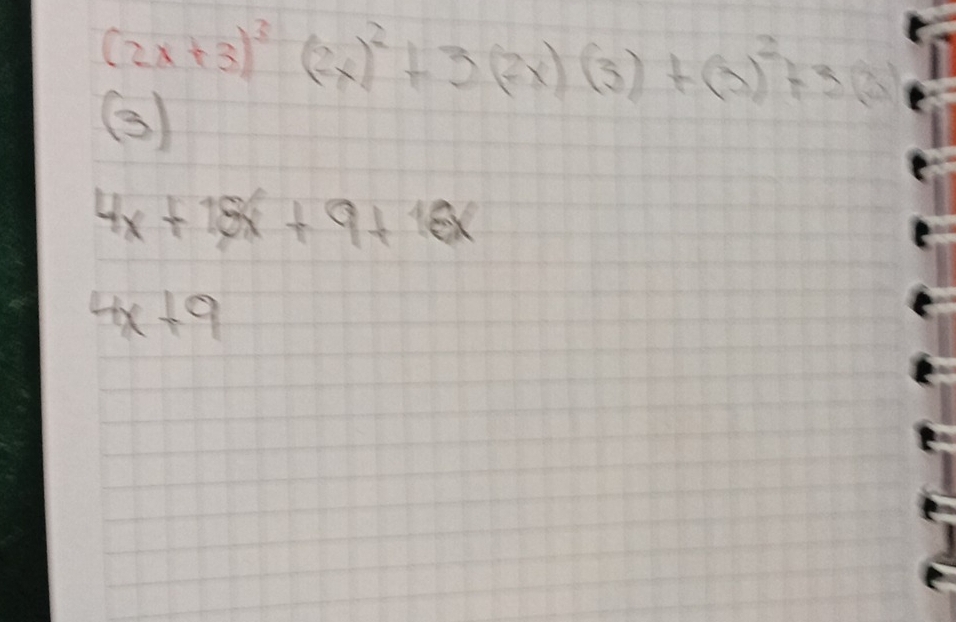 (2x+3)³ (2x)² + 3(2x)(3) + (3)² + 3(2x)
(3)
4x + 18x + 9 + 18x
4x + 9